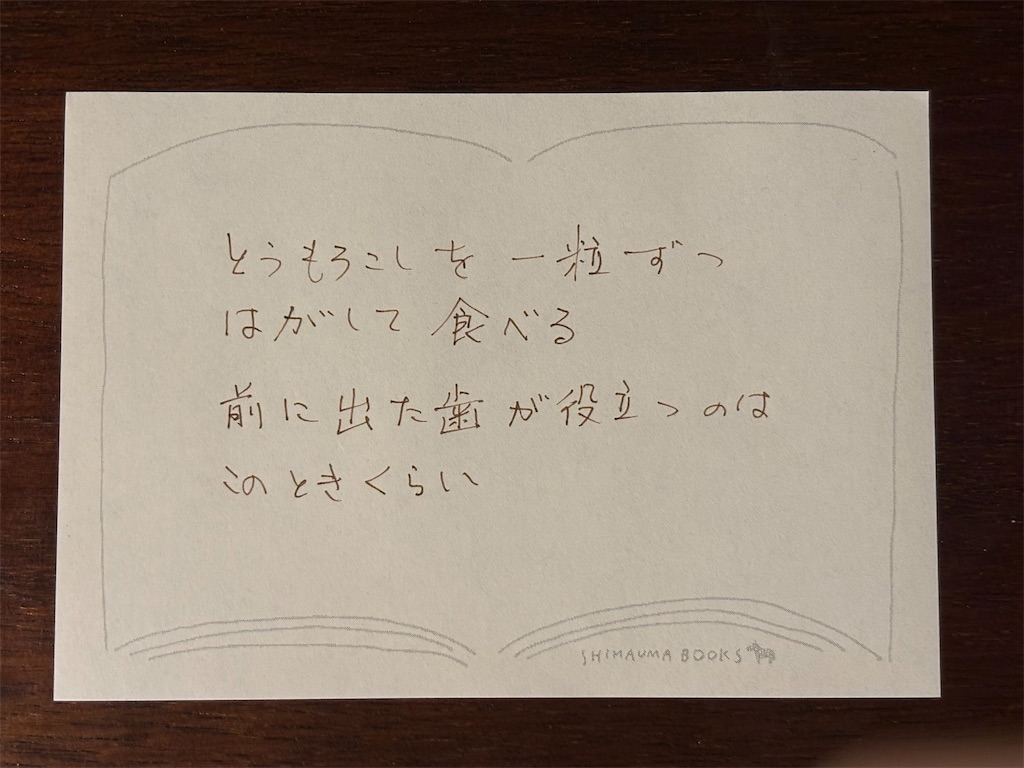 とうもろこしを一粒ずつ
はがして食べる
前に出た歯が役立つのは
このときくらい
SHIMAUMA BOOKS